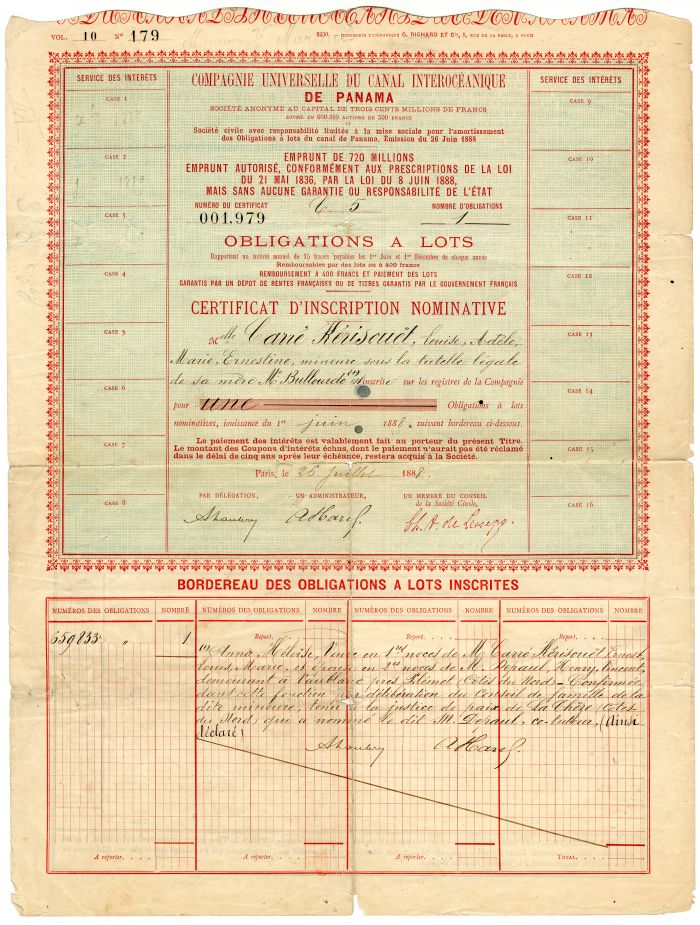 VOL. 10 Nº 179
2230. — IMPRIMERIE G. RICHARD ET Cie, 5, RUE DE LA PERLE, A PARIS
SERVICE DES INTÉRÊTS
CASE 1
CASE 2
CASE 3
CASE 4
CASE 5
CASE 6
CASE 7
CASE 8
COMPAGNIE UNIVERSELLE DU CANAL INTEROCÉANIQUE
DE PANAMA
SOCIÉTÉ ANONYME AU CAPITAL DE TROIS CENTS MILLIONS DE FRANCS
DIVISÉ EN 600.000 ACTIONS DE 500 FRANCS
Société civile avec responsabilité limitée à la mise sociale pour l'amortissement
des Obligations à lots du canal de Panama, Émission du 26 Juin 1888
EMPRUNT DE 720 MILLIONS
EMPRUNT AUTORISÉ, CONFORMÉMENT AUX PRESCRIPTIONS DE LA LOI
DU 21 MAI 1836, PAR LA LOI DU 8 JUIN 1888,
MAIS SANS AUCUNE GARANTIE OU RESPONSABILITÉ DE L'ÉTAT
NUMÉRO DU CERTIFICAT
001.979
NOMBRE D'OBLIGATIONS
1
OBLIGATIONS A LOTS
Rapportent un intérêt annuel de 15 francs payables les 1er Juin et 1er Décembre de chaque année
Remboursables par des lots ou à 400 francs
REMBOURSEMENT A 400 FRANCS ET PAIEMENT DES LOTS
GARANTIS PAR UN DÉPOT DE RENTES FRANÇAISES OU DE TITRES GARANTIS PAR LE GOUVERNEMENT FRANÇAIS
CERTIFICAT D'INSCRIPTION NOMINATIVE
Melle Carré Kérisouët, Louise, Adèle,
Marie, Ernestine, mineure sous la tutelle légale
de sa mère Me Bullourde (1) est inscrite sur les registres de la Compagnie
pour une Obligations à lots
nominatives, jouissance du 1er juin 1888. suivant bordereau ci-dessous.
Le paiement des intérêts est valablement fait au porteur du présent Titre.
Le montant des Coupons d'intérêts échus, dont le paiement n'aurait pas été réclamé
dans le délai de cinq ans après leur échéance, restera acquis à la Société.
Paris, le 26 juillet 1888.
PAR DÉLÉGATION,
UN ADMINISTRATEUR,
UN MEMBRE DU CONSEIL
de la Société Civile,
Ch. A. de Lesseps.
SERVICE DES INTÉRÊTS
CASE 9
CASE 10
CASE 11
CASE 12
CASE 13
CASE 14
CASE 15
CASE 16
BORDEREAU DES OBLIGATIONS A LOTS INSCRITES
NUMÉROS DES OBLIGATIONS NOMBRE NUMÉROS DES OBLIGATIONS NOMBRE NUMÉROS DES OBLIGATIONS NOMBRE NUMÉROS DES OBLIGATIONS NOMBRE
Report. . . . Report. . . . Report. . . .
659833 " 1
(1) Anna, Héloïse, Veuve en 1res noces de Mr Carré Kérisouët Ernest,
Louis, Marie, et épouse en 2es noces de M. Depaul, Henry, Vincent,
demeurant à Vaublanc près Plémet (Côtes du Nord) - Confirmée
dans cette fonction par délibération du Conseil de famille de la
dite mineure, tenu à la justice de paix de la Chèze (Côtes
du Nord) qui a nommé le dit M. Depaul, co-tuteur, (Ainsi
déclaré)
A reporter. . . . . A reporter. . . . A reporter. . . . TOTAL. . . .